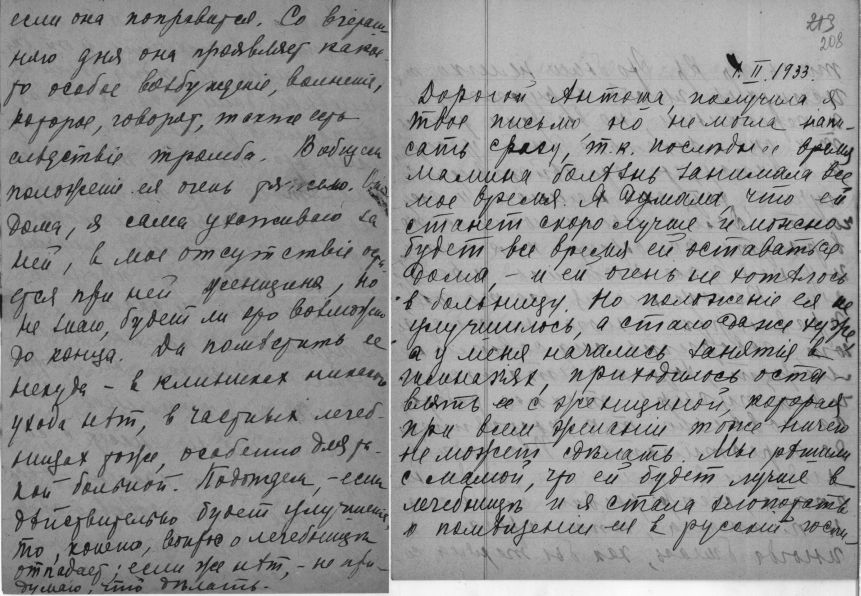 если она поправится. Со вчераш-
няго дня она проявляет какое-
то особое возбужденіе, волненіе,
которое, говорят, также есть
следствіе тромба. Вообщем
положеніе ея очень тяжело.
Дома, я сама ухаживаю за
ней, в мое отсутствіе оста-
ется при ней женщина, но
не знаю, будет ли это возможно
до конца. Да поместить ее
некуда – в клиниках никакого
ухода нѣт, в частных лечеб-
ницах тоже, особенно для та-
кой больной. Подождем, – если
дѣйствительно будет улучшеніе,
то, конечно, вопрос о лечебницѣ
отпадает; если же нѣт, – не при-
думаю, что дѣлать.
203
208
1. II. 1933.
Дорогой Антоша, получила я
твое письмо но не могла напи-
сать сразу, т.к. последнее время
мамина болѣзнь занимала все
мое время. Я думала что ей
станет скоро лучше и можно
будет все время ей оставаться
дома, – и ей очень не хотѣлось
в больницу. Но положеніе ея не
улучшилось, а стало даже хуже
а у меня начались занятія в
гимназіях, приходилось оста
влять ее с женщиной, которая
при всем желании тоже ничего
не может сдѣлать. Мы решили
с мамой, что ей будет лучше в
лечебницѣ и я стала хлопотать
о помѣщении ея в русский госпи-